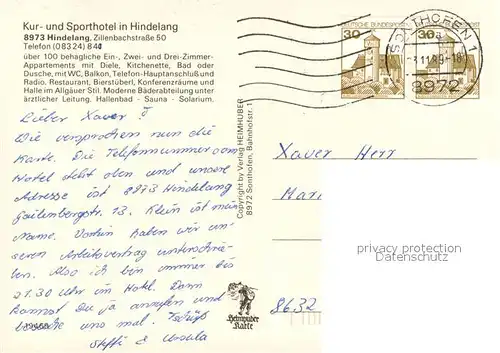 Kur- und Sporthotel in Hindelang
8973 Hindelang, Zillenbachstraße 50
Telefon (08324) 841
über 100 behagliche Ein-, Zwei- und Drei-Zimmer-
Appartements mit Diele, Kitchenette, Bad oder
Dusche, mit WC, Balkon, Telefon-Hauptanschluß und
Radio. Restaurant, Bierstüberl, Konferenzräume und
Halle im Allgäuer Stil. Moderne Bäderabteilung unter
ärztlicher Leitung. Hallenbad - Sauna - Solarium.
Lieber Xaver!
Wie versprochen nun die
Karte. Die Telefonnummer vom
Hotel steht oben und unsere
Adresse ist 8973 Hindelang
Gailenbergstr. 13. Klein ist mein
Name. Vorhin haben wir un-
seren Arbeitsvertrag unterschrie-
ben. Also ich bin immer bis
21.30 Uhr im Hotel. Dann
kannst Du ja anrufen und
besuche uns mal. Tschüß
Steffi & Ursula
Copyright by Verlag HEIMHUBER
8972 Sonthofen, Bahnhofstr. 1
Heimhuber
Karte
DEUTSCHE BUNDESPOST
30
30
SONTHOFEN 1
8972
Xaver Herr
8632
privacy protection